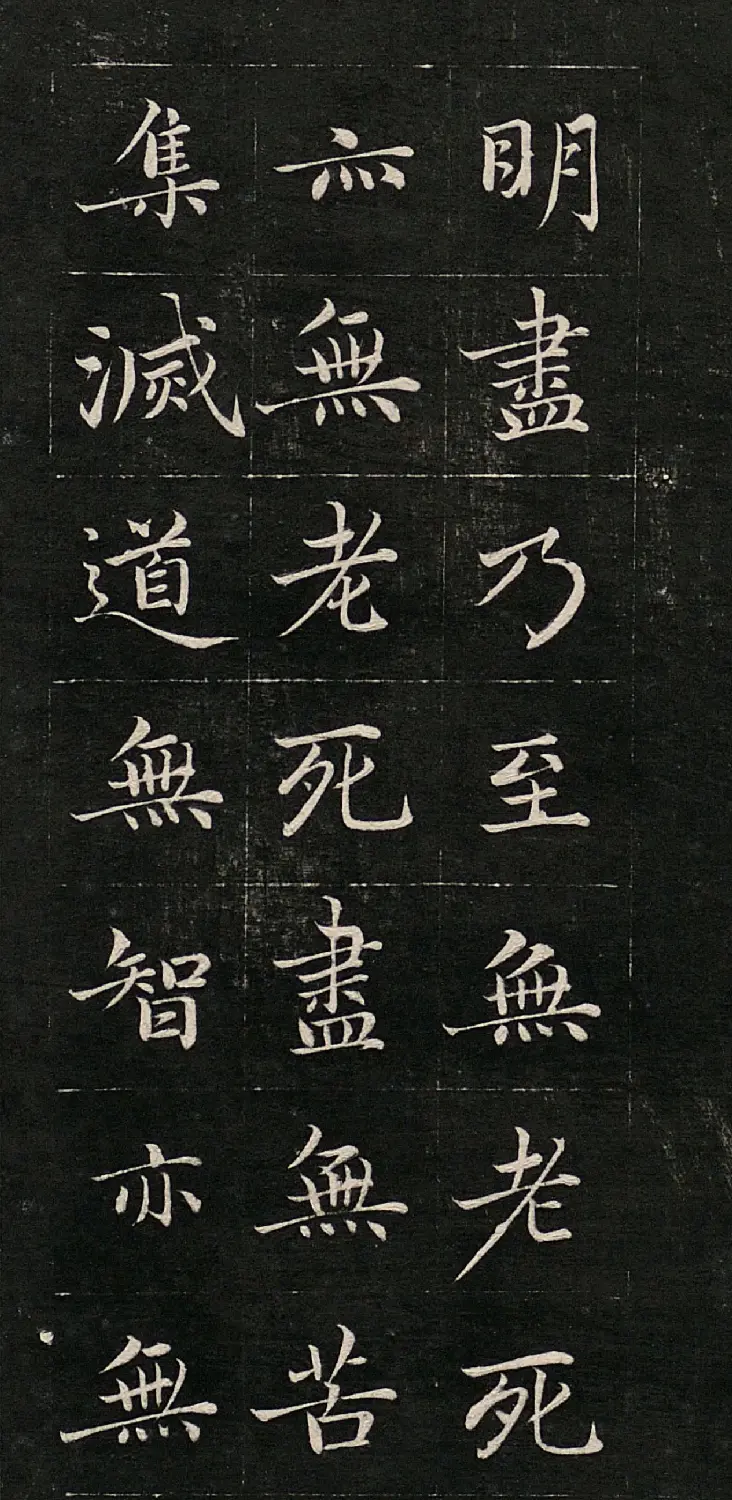 明盡乃至無老死
亦無老死盡無苦
集滅道無智亦無